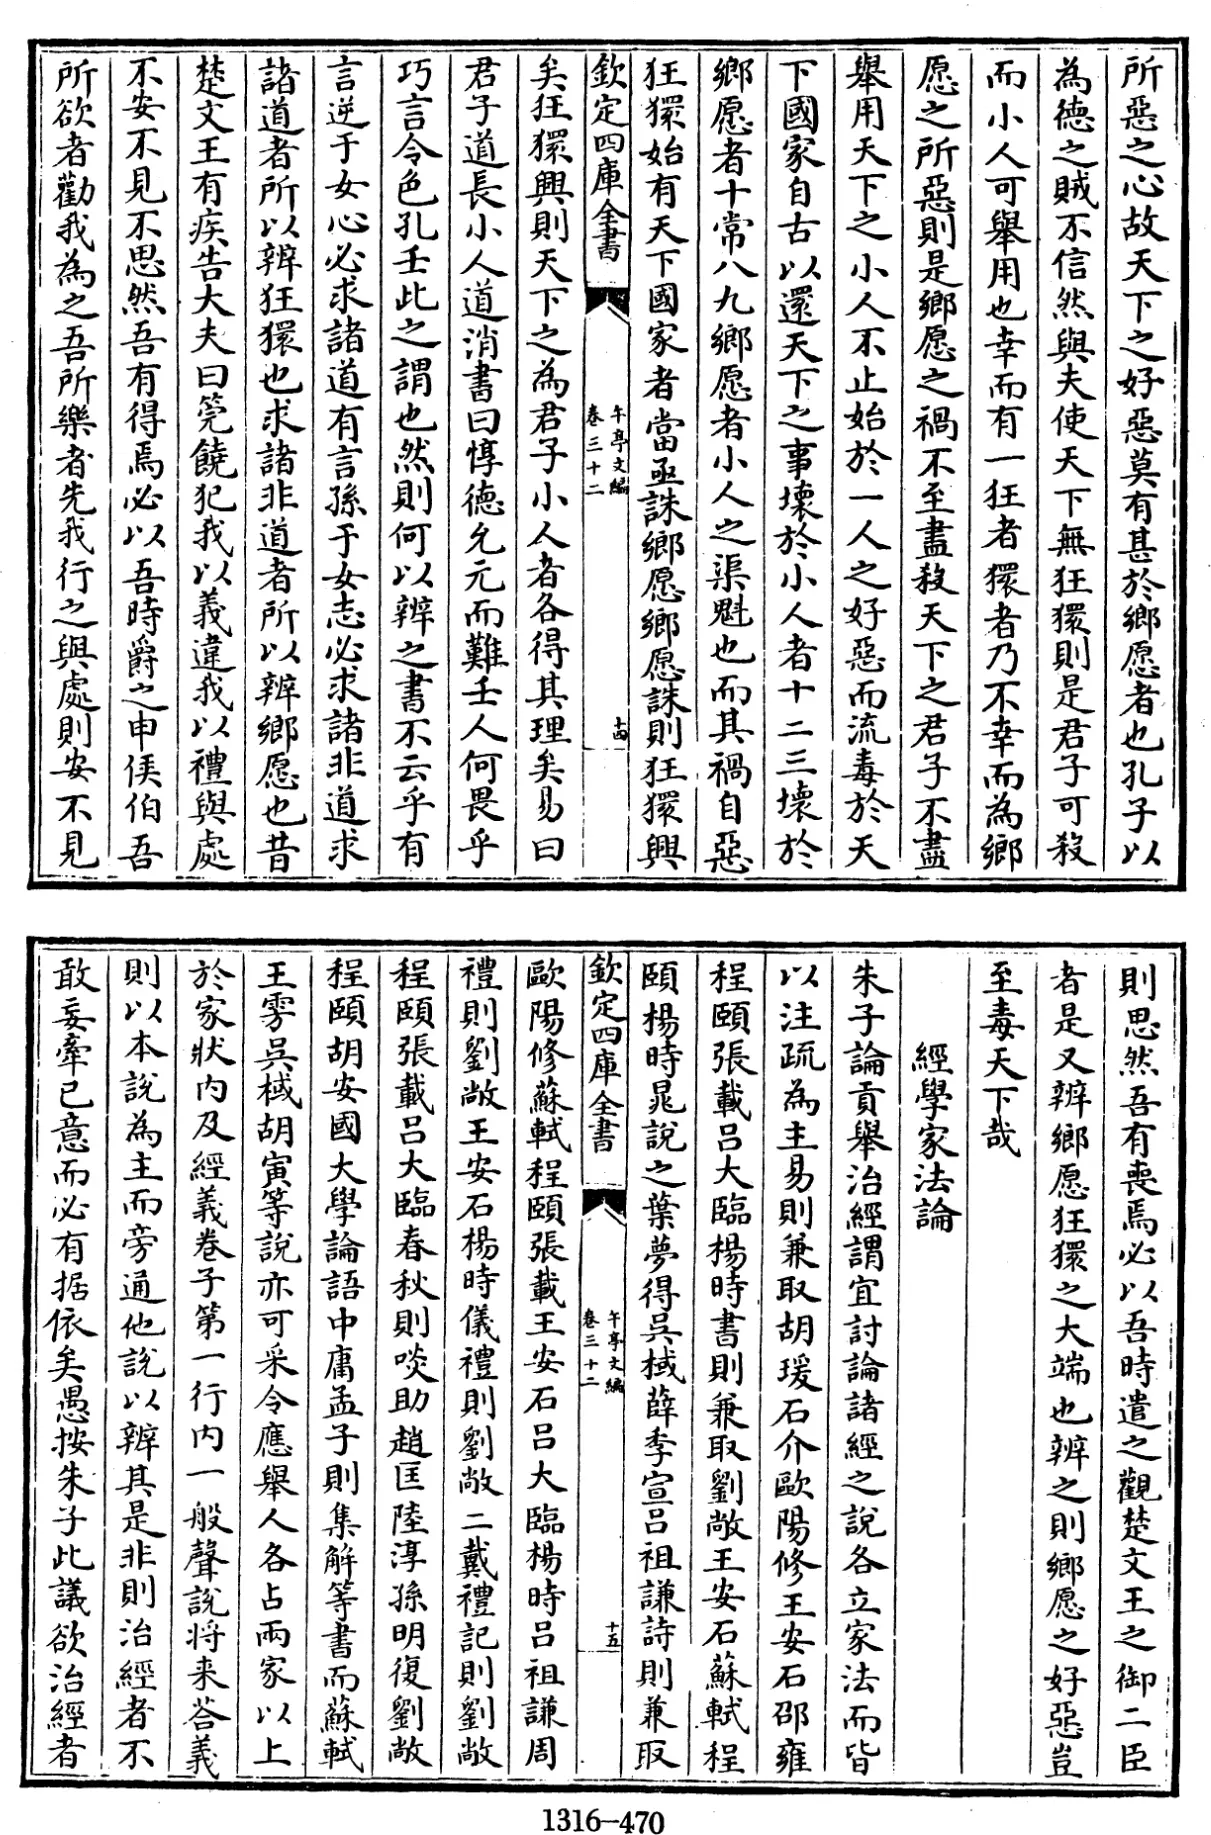 所惡之心故天下之好惡莫有甚於鄉愿者也孔子以
為德之賊不信然與夫使天下無狂獧則是君子可殺
而小人可舉用也幸而有一狂者獧者乃不幸而為鄉
愿之所惡則是鄉愿之禍不至盡殺天下之君子不盡
舉用天下之小人不止始於一人之好惡而流毒於天
下國家自古以還天下之事壊於小人者十二三壊於
鄉愿者十常八九鄉愿者小人之渠魁也而其禍自惡
狂獧始有天下國家者當亟誅鄉愿鄉愿誅則狂獧興
欽定四庫全書
午亭文編
卷三十二
十四
矣狂獧興則天下之為君子小人者各得其理矣易曰
君子道長小人道消書曰惇德允元而難壬人何畏乎
巧言令色孔壬此之謂也然則何以辨之書不云乎有
言逆于女心必求諸道有言孫于女志必求諸非道求
諸道者所以辨狂獧也求諸非道者所以辨鄉愿也昔
楚文王有疾告大夫曰筦饒犯我以義違我以禮與處
不安不見不思然吾有得焉必以吾時爵之申侯伯吾
所欲者勸我為之吾所樂者先我行之與處則安不見
則思然吾有喪焉必以吾時遣之觀楚文王之御二臣
者是又辨鄉愿狂獧之大端也辨之則鄉愿之好惡豈
至毒天下哉
經學家法論
朱子論貢舉治經謂宜討論諸經之說各立家法而皆
以注疏為主易則兼取胡瑗石介歐陽修王安石邵雍
程頤張載呂大臨楊時書則兼取劉敞王安石蘇軾程
頤楊時晁說之葉夢得吳棫薛季宣呂祖謙詩則兼取
欽定四庫全書
午亭文編
卷三十二
十五
歐陽修蘇軾程頤張載王安石呂大臨楊時呂祖謙周
禮則劉敞王安石楊時儀禮則劉敞二戴禮記則劉敞
程頤張載呂大臨春秋則啖助趙匡陸淳孫明復劉敞
程頤胡安國大學論語中庸孟子則集解等書而蘇軾
王雱吳棫胡寅等說亦可采令應舉人各占兩家以上
於家狀內及經義卷子第一行內一般聲說將来答義
則以本說為主而旁通他說以辨其是非則治經者不
敢妄牽已意而必有据依矣愚按朱子此議欲治經者
1316-470